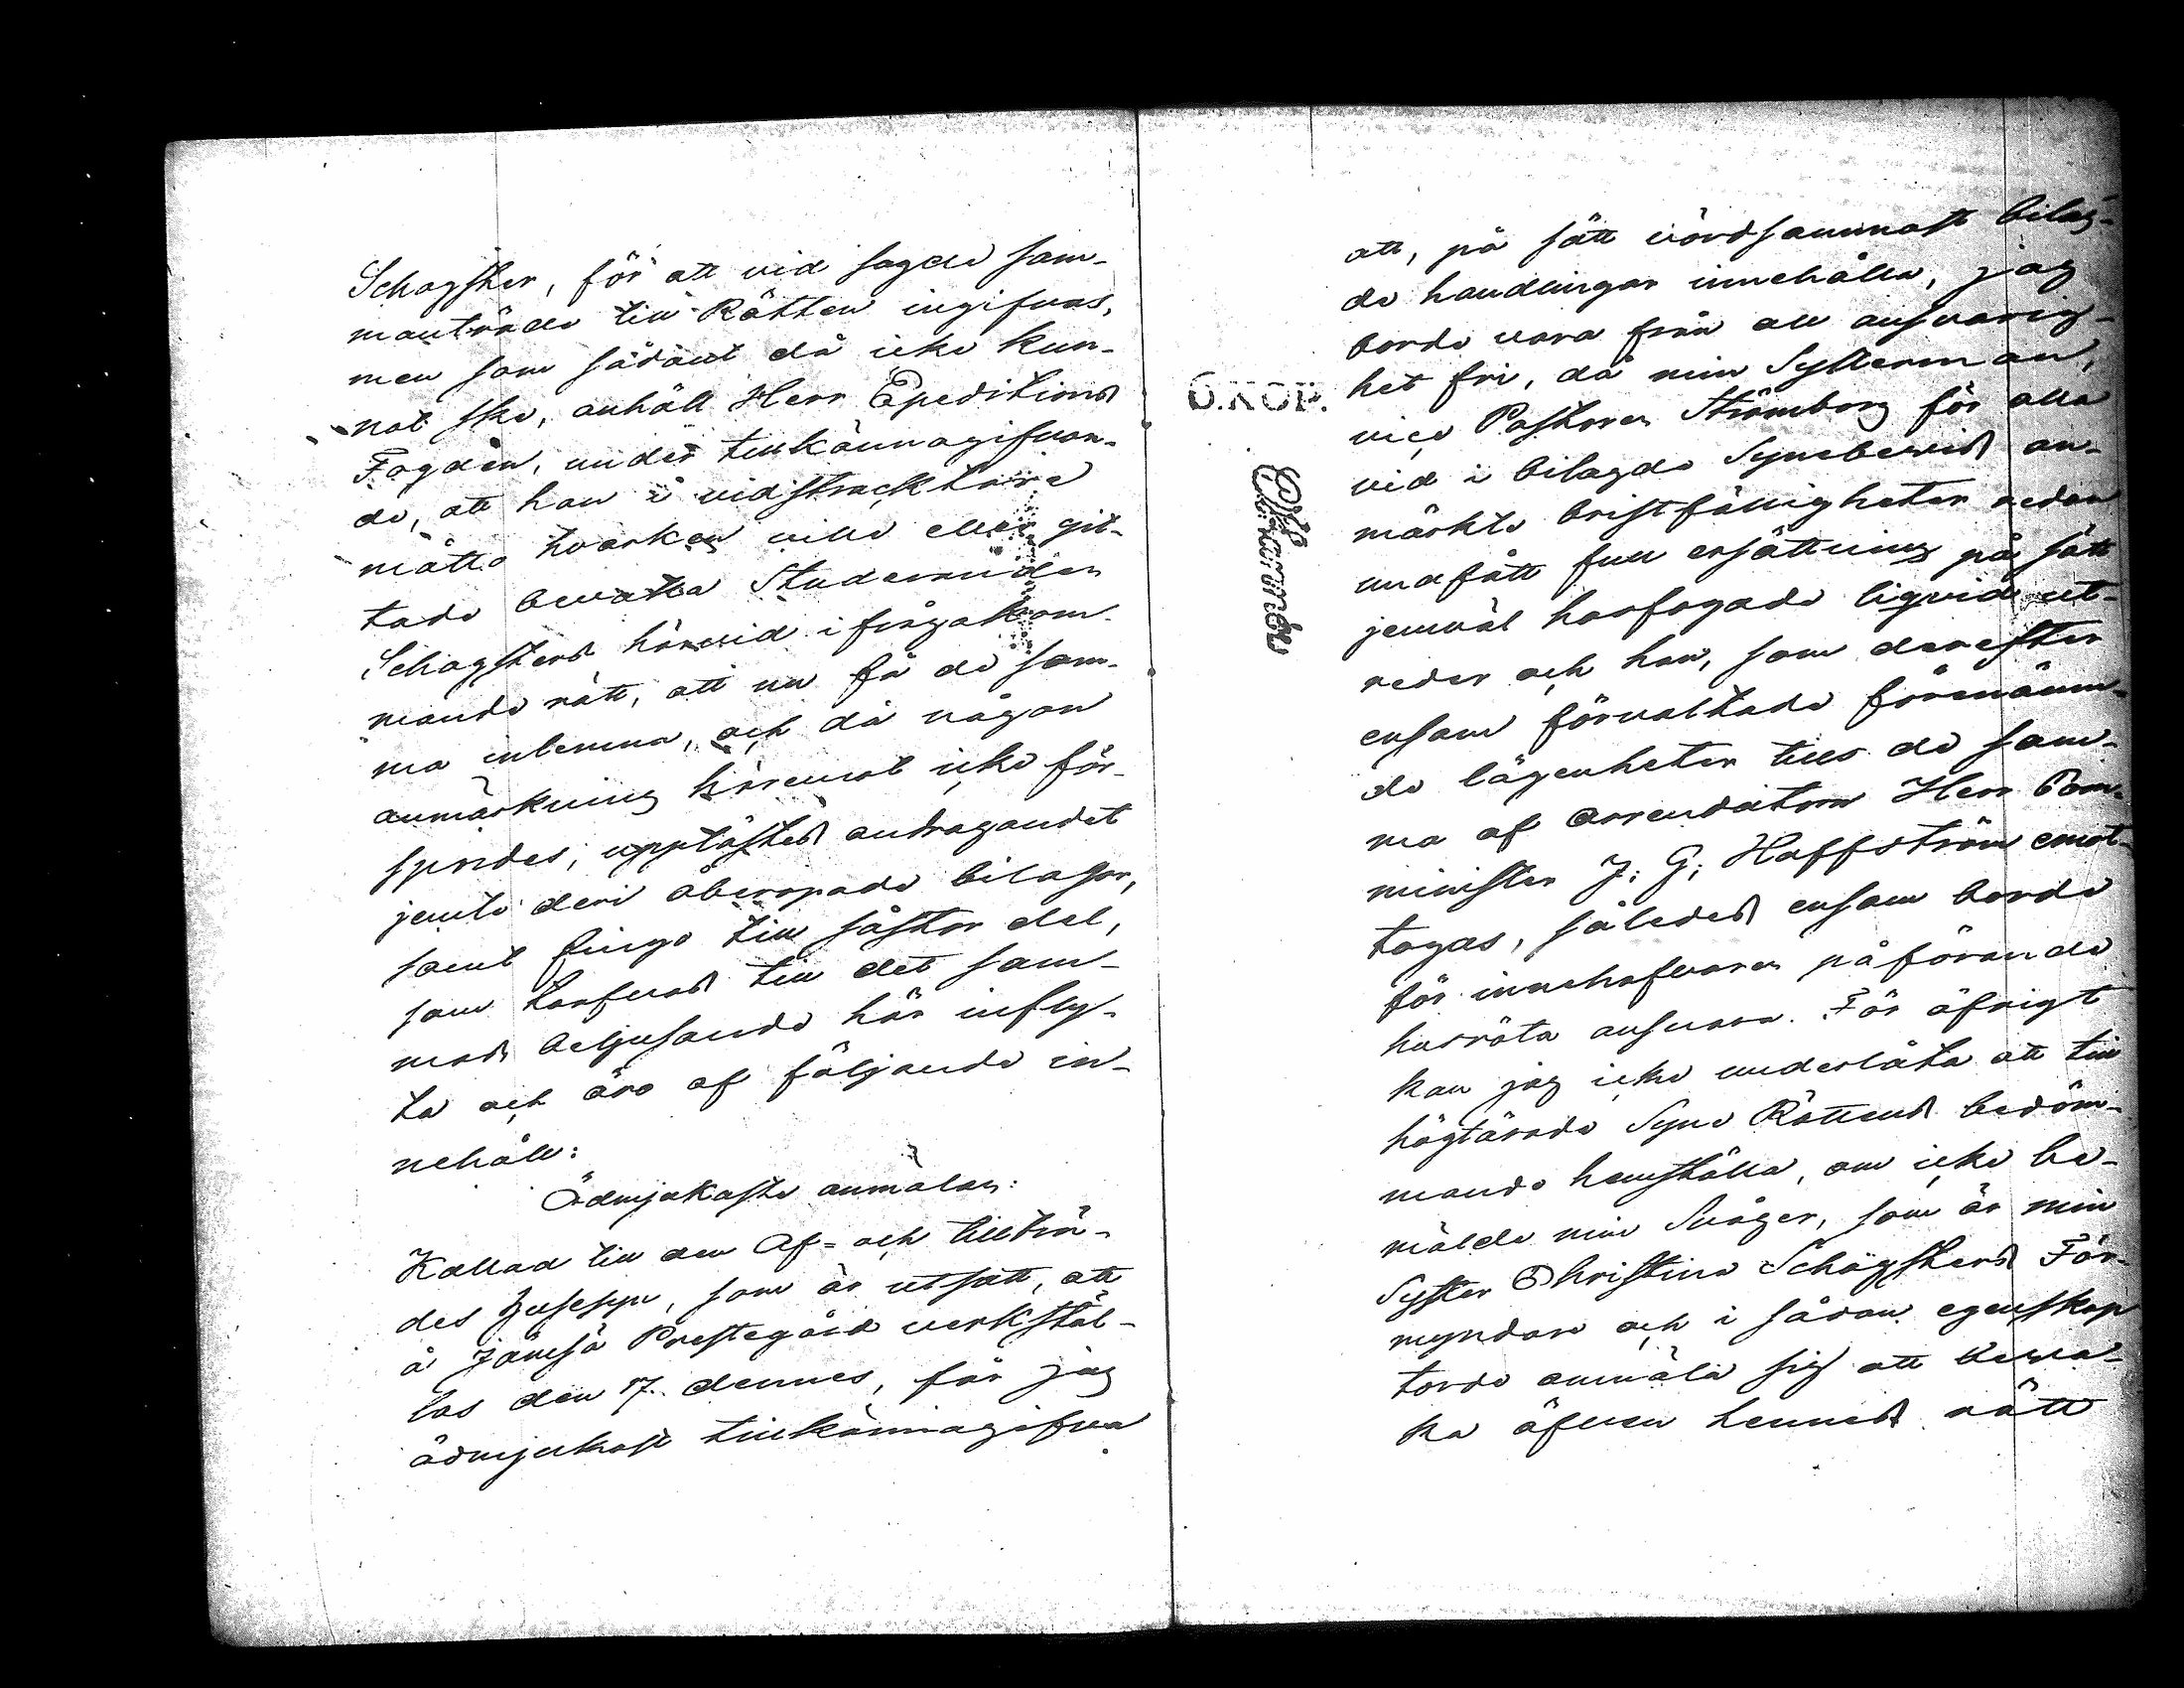 Schogster, för att vid sagde sam-
manträde till Rätten ingifvas,
men som sådant då icke kun-
nat ske, anhöll Herr Expeditions
Fogden, under tillkännagifvan-
de, att han i vidsträcktare
måtto hvarken ville eller git-
tade bevaka Studeranden
Schogsters härvid i frågakom-
mande rätt, att nu få de sam-
ma inlemna, och då någon
anmärkning häremot icke för-
spordes, upplästes andragandet
jemte deri åberopade bilagor,
samt fingo till såstor del,
som tarfvas till det sam-
mas belysande här infly-
ta och äro af följande in-
nehåll:
Ödmjukaste anmälan:
Kallad till den Af- och tillträ-
des husesyn, som är utsatt, att
å Jämsä Prestegård verkstäl-
las den 17. dennes, får jag
ödmjukast tillkännagifva
att, på sätt vördsammast bilag-
de handlingar innehålla, jag
borde vara från all ansvarig-
het fri, då min Systerman,
vice Pastoren Strömborg för alla
vid i bilagde Synebevis an-
märkte bristfälligheter redan
undfått full ersättning på sätt
jemväl härfogade liqvid ut-
reder och han, som derefter
ensam förvaltade förenämn-
de lägenheter tills de sam-
ma af Arrendatorn Herr Kom-
minister J. G. Haffström emot-
togas, således ensam borde
för innehafvaren påförande
husröta ansvara. För öfrigt
kan jag icke underlåta att till
högtärade Syne Rättens bedöm-
mande hemställa, om icke be-
mälde min Svåger, som är min
Syster Christina Schögsters För-
myndare och i sådan egenskap
torde anmäla sig att beva-
ka äfven hennes rätt
Ö.KOP.